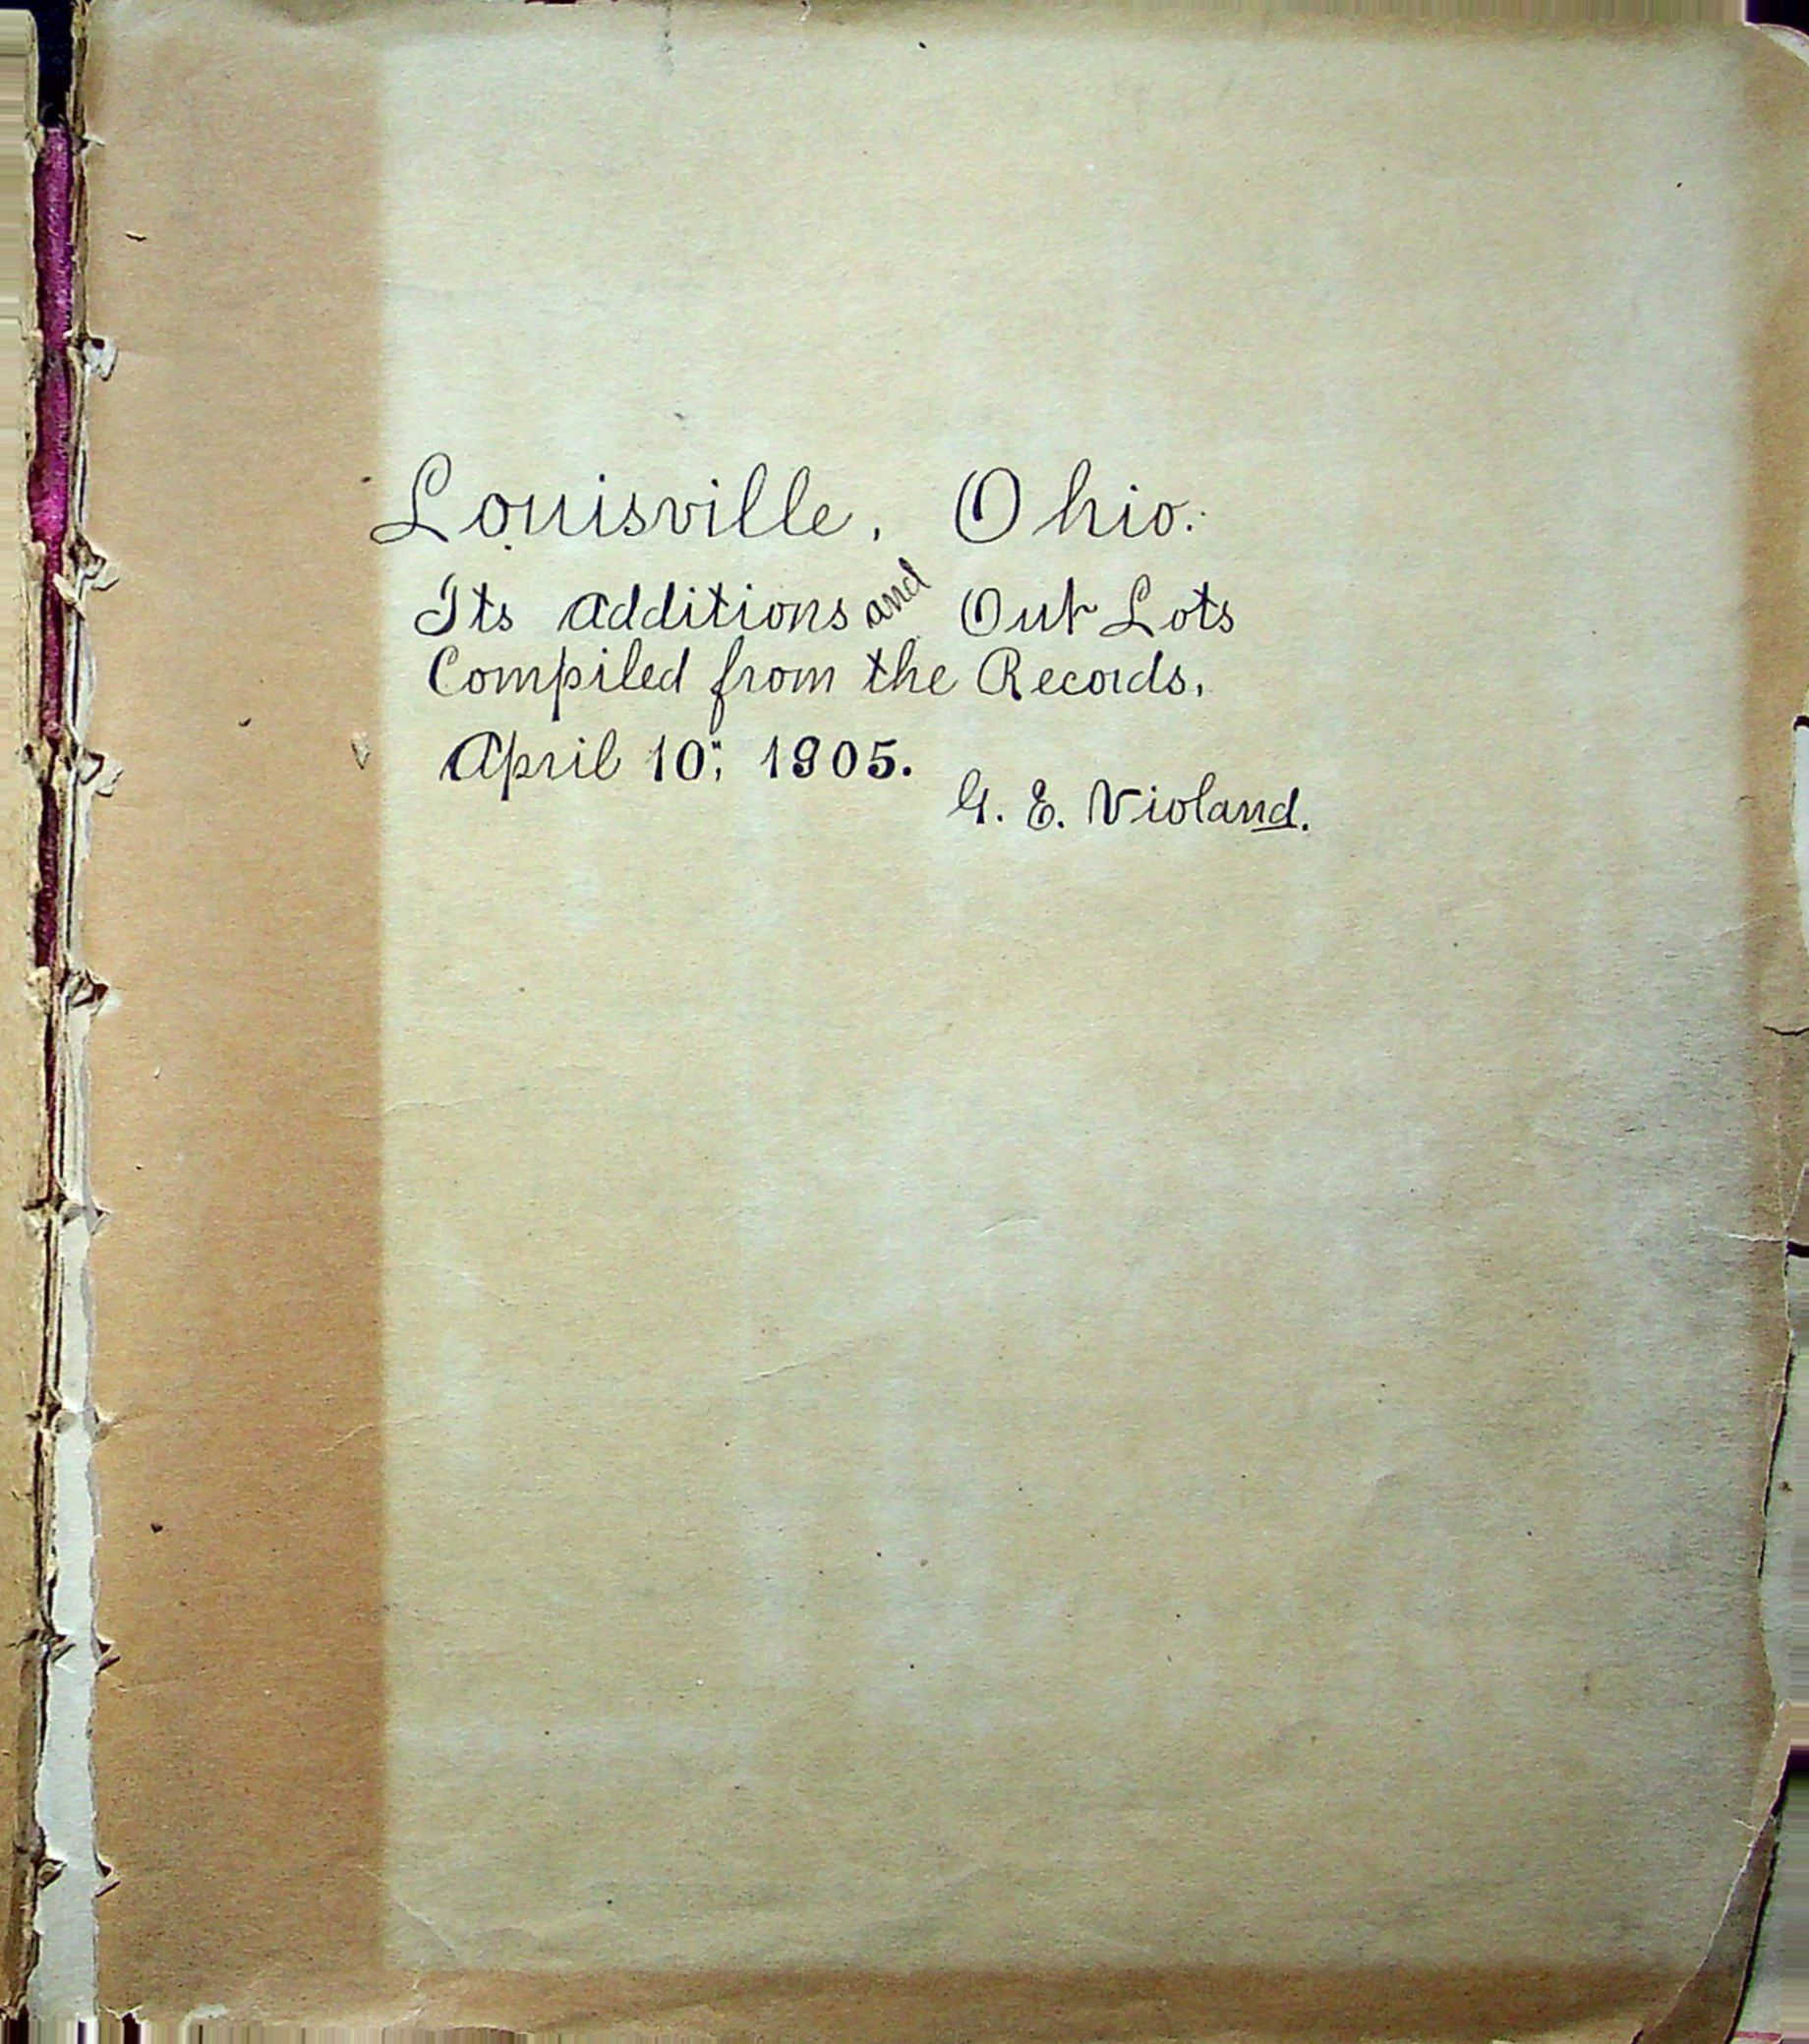 Louisville, Ohio.
Its Additions and Out Lots
Compiled from the Records.
April 10", 1905.
G. E. Violand.